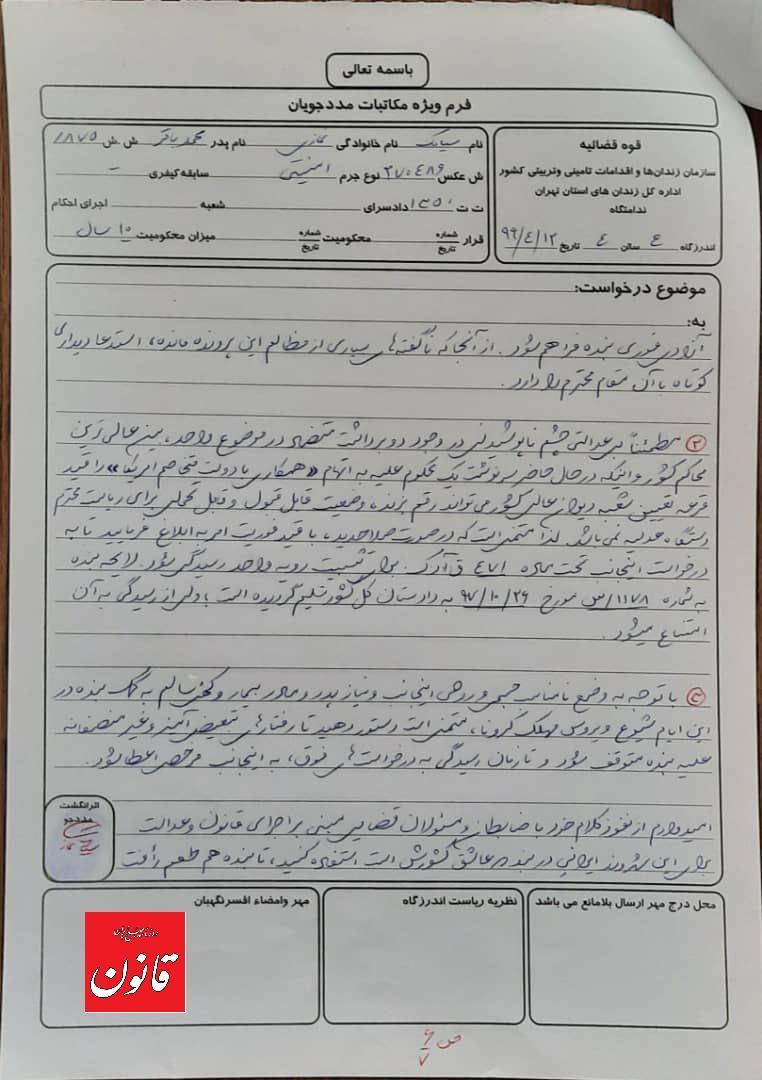 باسمه تعالی
فرم ویژه مکاتبات مددجویان
قوه قضائیه
سازمان زندان‌ها و اقدامات تامینی وتربیتی کشور
اداره کل زندان های استان تهران
ندامتگاه
اندرزگاه ٤ سالن ٤ تاریخ ۹۹/٤/۱۲
نام سیامک نام خانوادگی نمازی نام پدر محمدباقر ش ش ۱۸۷۵
ش عکس ۲۷۰٤۸۶ نوع جرم امنیتی سابقه کیفری -
ت ت ۱۳۵۰ دادسرای شعبه اجرای احکام
قرار شماره تاریخ محکومیت شماره تاریخ میزان محکومیت ۱۰ سال
موضوع درخواست:
به:
آزادی فوری بنده فراهم شود. از آنجا که ناگفته‌های بسیاری از مظالم این پرونده مانده، استدعا دیداری
کوتاه با آن مقام محترم را دارد.
۲) مطمئناً بی عدالتی چشم ناپوشیدنی در وجود دو برداشت متضاد در موضوع واحد، بین عالی ترین
محاکم کشور و اینکه در حال حاضر سرنوشت یک محکوم علیه به اتهام «همکاری با دولت متخاصم امریکا» را قید
قرعه تعیین شعبه دیوان عالی کشور می‌تواند رقم بزند، وضعیت قابل قبول و قابل تحملی برای ریاست محترم
دستگاه عدلیه نمی باشد. لذا متمنی است که در صورت صلاحدید، با قید فوریت امر به ابلاغ فرمایید تا به
درخواست اینجانب تحت ماده ٤۷۱ ق آ د ک برای تثبیت رویه واحد رسیدگی شود. لایحه بنده
به شماره ۱۱۷۸/ص مورخ ۹۷/۱۰/۲۶ به دادستان کل کشور تسلیم گردیده است، ولی از رسیدگی به آن
امتناع میشود.
۳) با توجه به وضع نامناسب جسمی و روحی اینجانب و نیاز پدر و مادر بیمار و کهنسالم به کمک بنده در
این ایام شیوع ویروس مهلک کرونا، متمنی است دستور دهید تا رفتارهای تبعیض آمیز و غیر منصفانه
علیه بنده متوقف شود و تا زمان رسیدگی به درخواست‌های فوق، به اینجانب مرخصی اعطا شود.
امیدوارم از نفوذ کلام خود با ضابطان و مسئولان قضایی مبنی بر اجرای قانون و عدالت
برای این شهروند ایرانی دربند که عاشق کشورش است استفاده کنید، تا بنده هم طعم رأفت
اثرانگشت
مددجو
محل درج مهر ارسال بلامانع می باشد
نظریه ریاست اندرزگاه
مهر وامضاء افسرنگهبان
قانون
ص ۶/۷